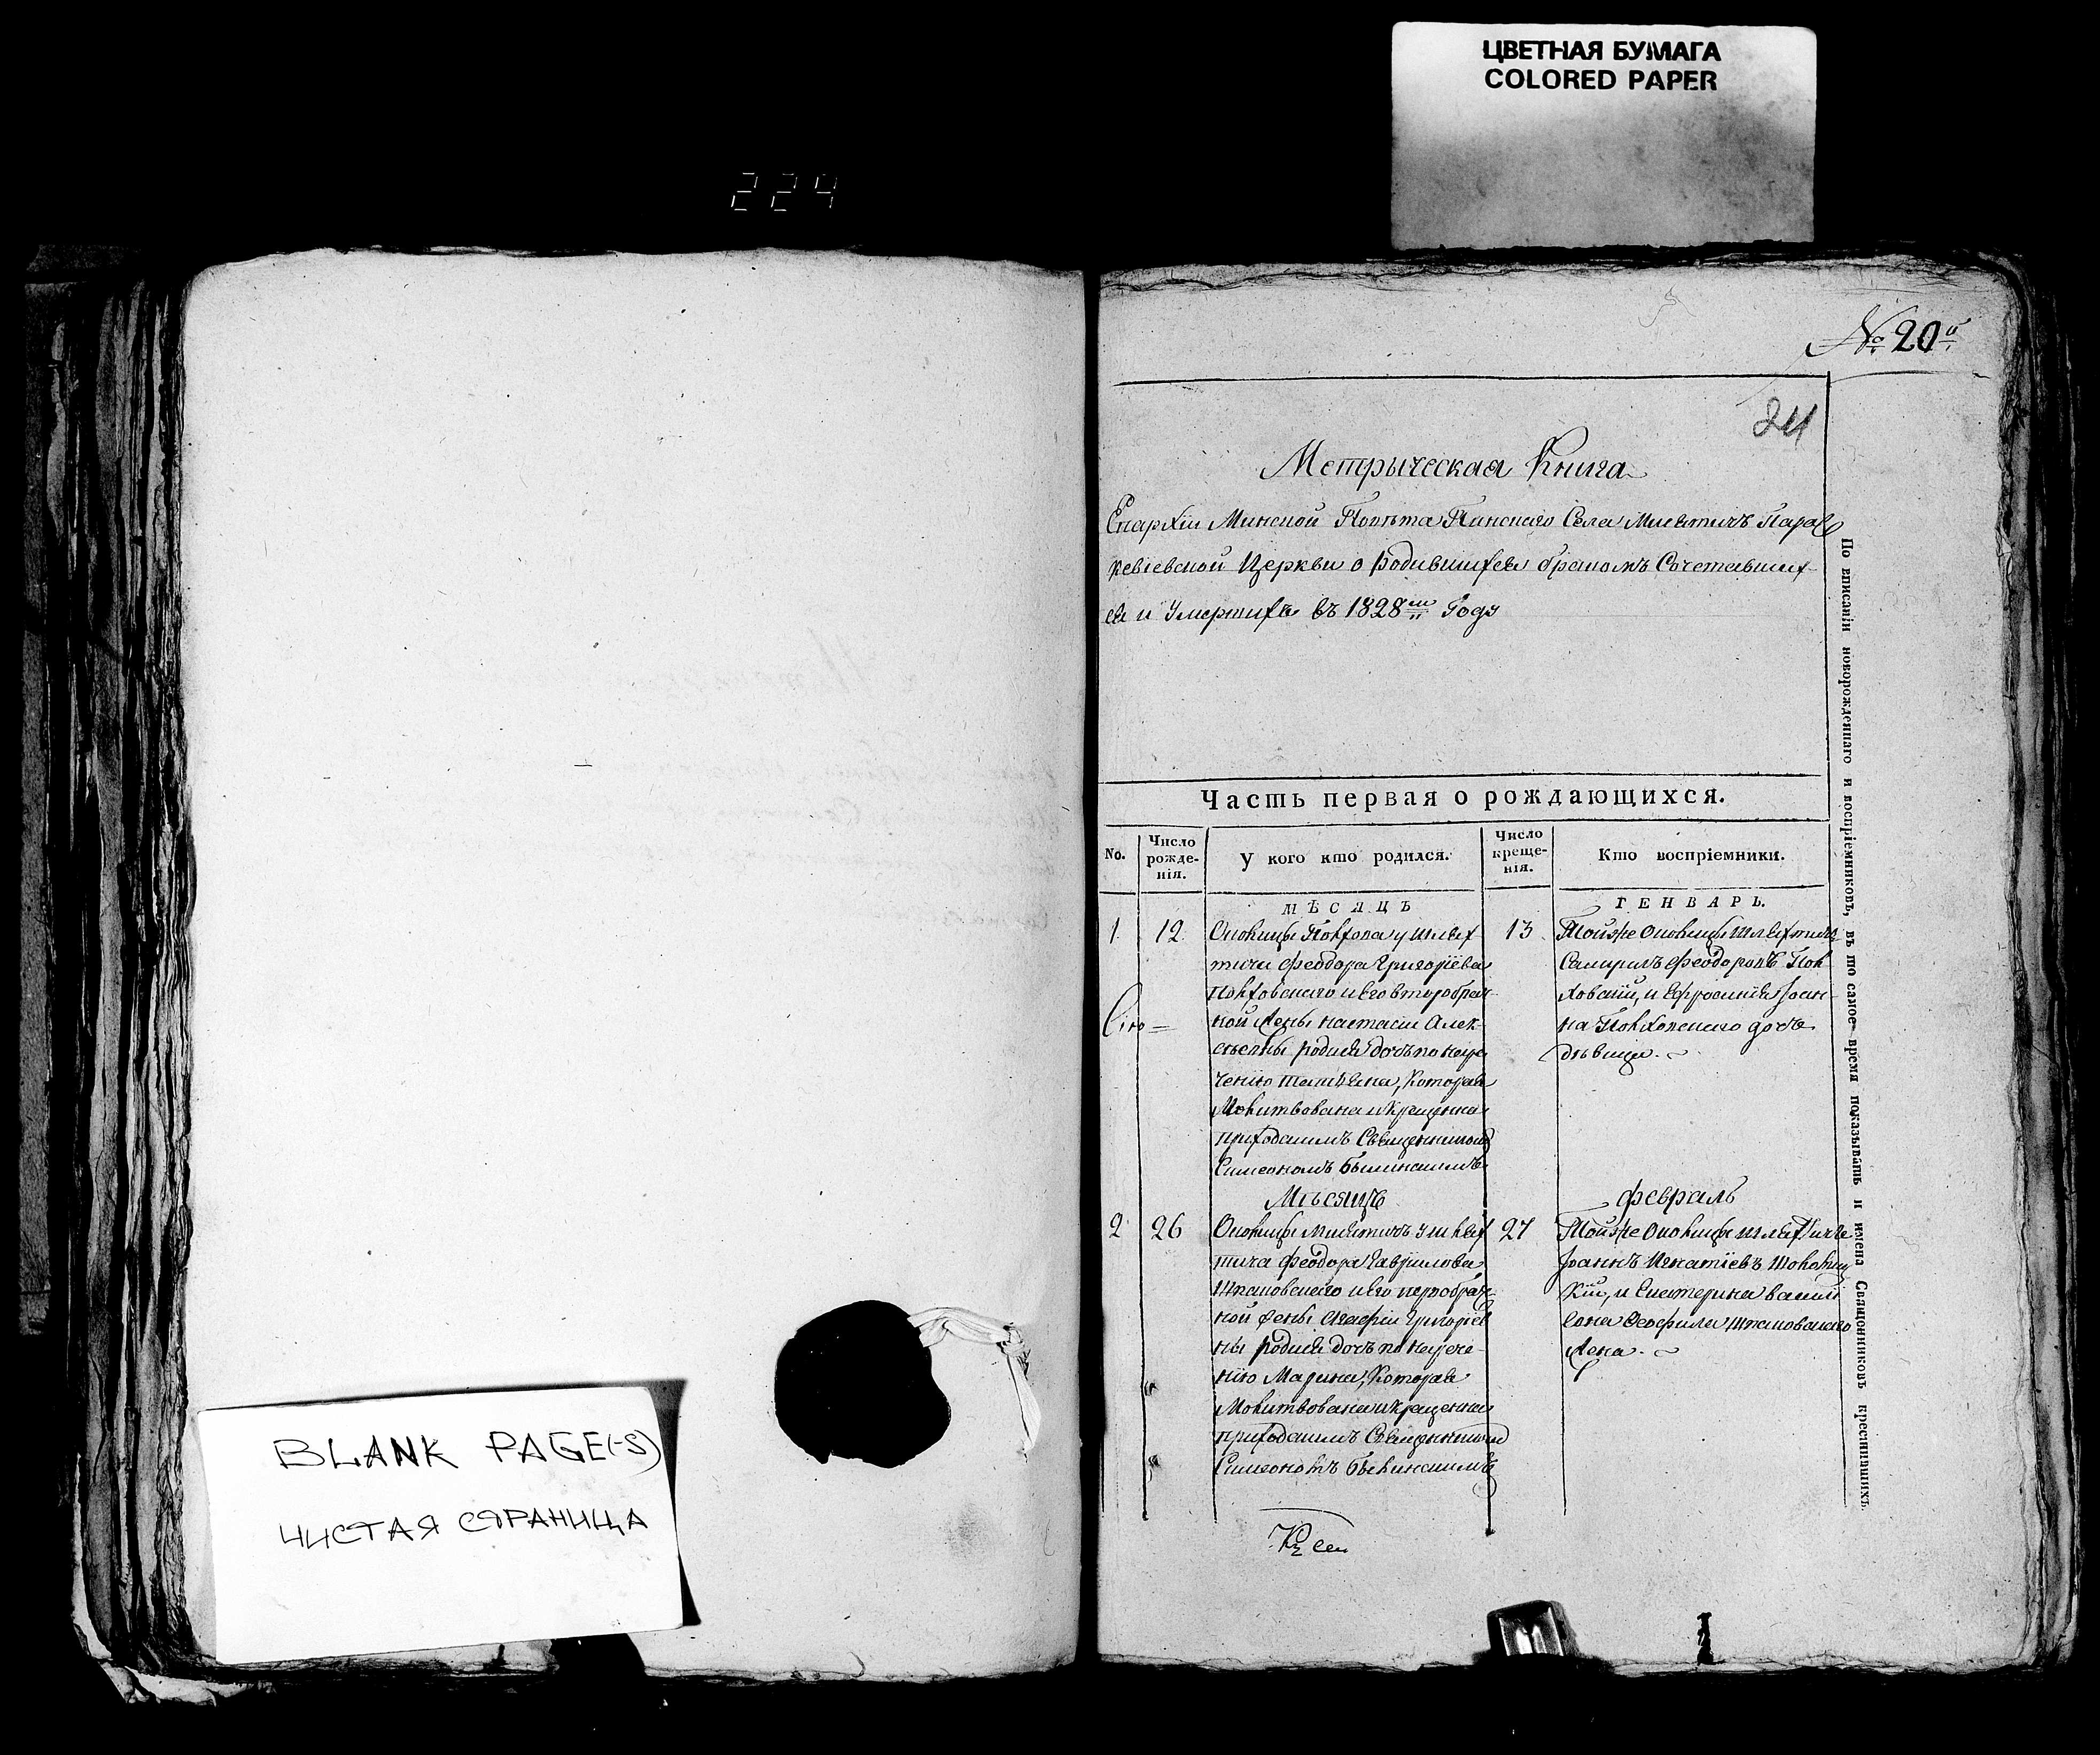 ЦВЕТНАЯ БУМАГА
COLORED PAPER
224
№ 20й
24
Метрыческая Книга
Епархіи Минской Повѣта Пинскаго Села Мисятичъ Парас
кевіевской Церкви о Родившихся бракомъ Сочетавших
ся и Умершихъ въ 1828м Году
По вписаніи новорожденнаго и воспріемниковъ, въ то самое время показывать и имена Священниковъ крестившихъ.
Часть первая о рождающихся.
No.
Число рожде-нія.
У кого кто родился.
Число креще-нія.
Кто воспріемники.
МѢСЯЦЪ
ГЕНВАРЬ.
1
12
Околицы у шлях
тича Феодора Григоріева
и его второбрач
ной жены Настасіи Алек
сѣевны родися дочъ по наре
ченію Татіяна, Которая
Молитвована и Крещенна
приходскимъ Священникомъ
Симеономъ
13
Тойже Околицы Шляхтичъ
Феодоровъ Пол
ховскій, и Ефросинія Іоан
на дочь
дѣвица.
Мѣсяцъ
Февраль
2
26
Околицы Мисятичъ у шлях
тича Феодора Гавриилова
и его первобрач
ной жены Агафіи Григоріев
ны родися дочъ по нарече
нію Марина, Которая
Молитвована и крещенна
приходскимъ Священникомъ
Симеономъ
27
Тойже Околицы шляхтичъ
Іоаннъ Игнатіевъ
кій, и Екатерина Васили
ева Феофила
жена.
BLANK PAGE(-S)
ЧИСТАЯ СТРАНИЦА